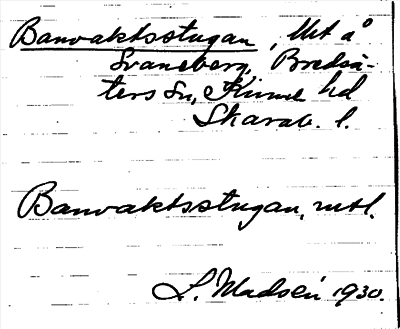 Banvaktsstugan, Ut å
Svaneberg, Bredsä-
ters sn, Kinne hd
Skarab. l.
Banvaktsstugan, mtl.
L. Madsén 1930.